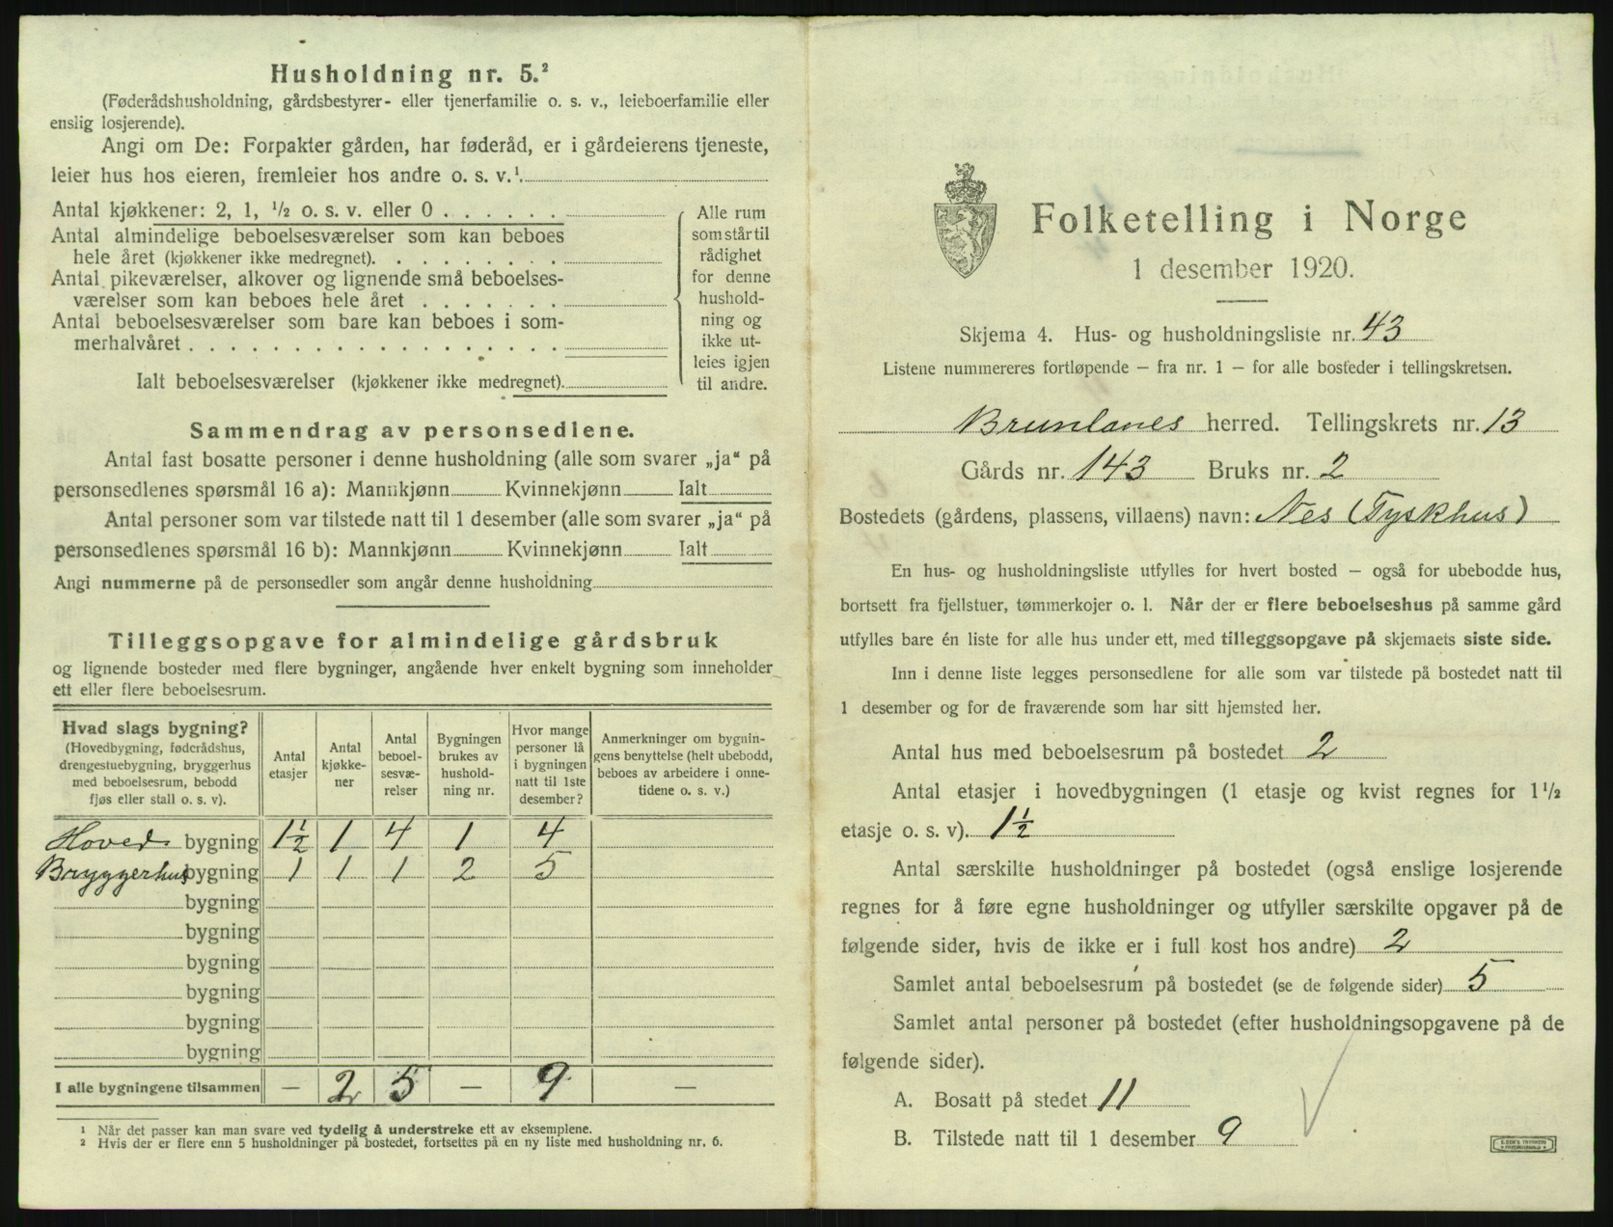 Husholdning nr. 5.²
(Føderådshusholdning, gårdsbestyrer- eller tjenerfamilie o. s. v., leieboerfamilie eller
enslig losjerende).
Angi om De: Forpakter gården, har føderåd, er i gårdeierens tjeneste,
leier hus hos eieren, fremleier hos andre o. s. v.¹
Antal kjøkkener: 2, 1, ½ o. s. v. eller 0 . . . . . .
Antal almindelige beboelsesværelser som kan beboes
hele året (kjøkkener ikke medregnet). . . . . . . . .
Antal pikeværelser, alkover og lignende små beboelses-
værelser som kan beboes hele året . . . . . . .
Antal beboelsesværelser som bare kan beboes i som-
merhalvåret . . . . . . . . . . . . . . . . . .
Ialt beboelsesværelser (kjøkkener ikke medregnet).
Alle rum
som står til
rådighet
for denne
hushold-
ning og
ikke ut-
leies igjen
til andre.
Sammendrag av personsedlene.
Antal fast bosatte personer i denne husholdning (alle som svarer „ja“ på
personsedlenes spørsmål 16 a): Mannkjønn Kvinnekjønn Ialt
Antal personer som var tilstede natt til 1 desember (alle som svarer „ja“ på
personsedlenes spørsmål 16 b): Mannkjønn Kvinnekjønn Ialt
Angi nummerne på de personsedler som angår denne husholdning
Tilleggsopgave for almindelige gårdsbruk
og lignende bosteder med flere bygninger, angående hver enkelt bygning som inneholder
ett eller flere beboelsesrum.
Hvad slags bygning?
(Hovedbygning, føderådshus,
drengestuebygning, bryggerhus
med beboelsesrum, bebodd
fjøs eller stall o. s. v).
Antal
etasjer
Antal
kjøkke-
ner
Antal
beboel-
sesvæ-
relser
Bygningen
brukes av
hushold-
ning nr.
Hvor mange
personer lå
i bygningen
natt til 1ste
desember?
Anmerkninger om bygnin-
gens benyttelse (helt ubebodd,
beboes av arbeidere i onne-
tidene o. s. v.)
Hoved- bygning 1½ 1 4 1 4
Bryggerhus bygning 1 1 1 2 5
bygning
bygning
bygning
bygning
bygning
bygning
I alle bygningene tilsammen — 2 5 — 9 —
¹ Når det passer kan man svare ved tydelig å understreke ett av eksemplene.
² Hvis der er flere enn 5 husholdninger på bostedet, fortsettes på en ny liste med husholdning nr. 6.
Folketelling i Norge
1 desember 1920.
Skjema 4. Hus- og husholdningsliste nr. 43
Listene nummereres fortløpende – fra nr. 1 – for alle bosteder i tellingskretsen.
Brunlanes herred. Tellingskrets nr. 13
Gårds nr. 143 Bruks nr. 2
Bostedets (gårdens, plassens, villaens) navn: Nes (Tyskhus)
En hus- og husholdningsliste utfylles for hvert bosted – også for ubebodde hus,
bortsett fra fjellstuer, tømmerkojer o. l. Når der er flere beboelseshus på samme gård
utfylles bare én liste for alle hus under ett, med tilleggsopgave på skjemaets siste side.
Inn i denne liste legges personsedlene for alle som var tilstede på bostedet natt til
1 desember og for de fraværende som har sitt hjemsted her.
Antal hus med beboelsesrum på bostedet 2
Antal etasjer i hovedbygningen (1 etasje og kvist regnes for 1½
etasje o. s. v). 1½
Antal særskilte husholdninger på bostedet (også enslige losjerende
regnes for å føre egne husholdninger og utfyller særskilte opgaver på de
følgende sider, hvis de ikke er i full kost hos andre) 2
Samlet antal beboelsesrum på bostedet (se de følgende sider) 5
Samlet antal personer på bostedet (efter husholdningsopgavene på de
følgende sider).
A. Bosatt på stedet 11
B. Tilstede natt til 1 desember 9